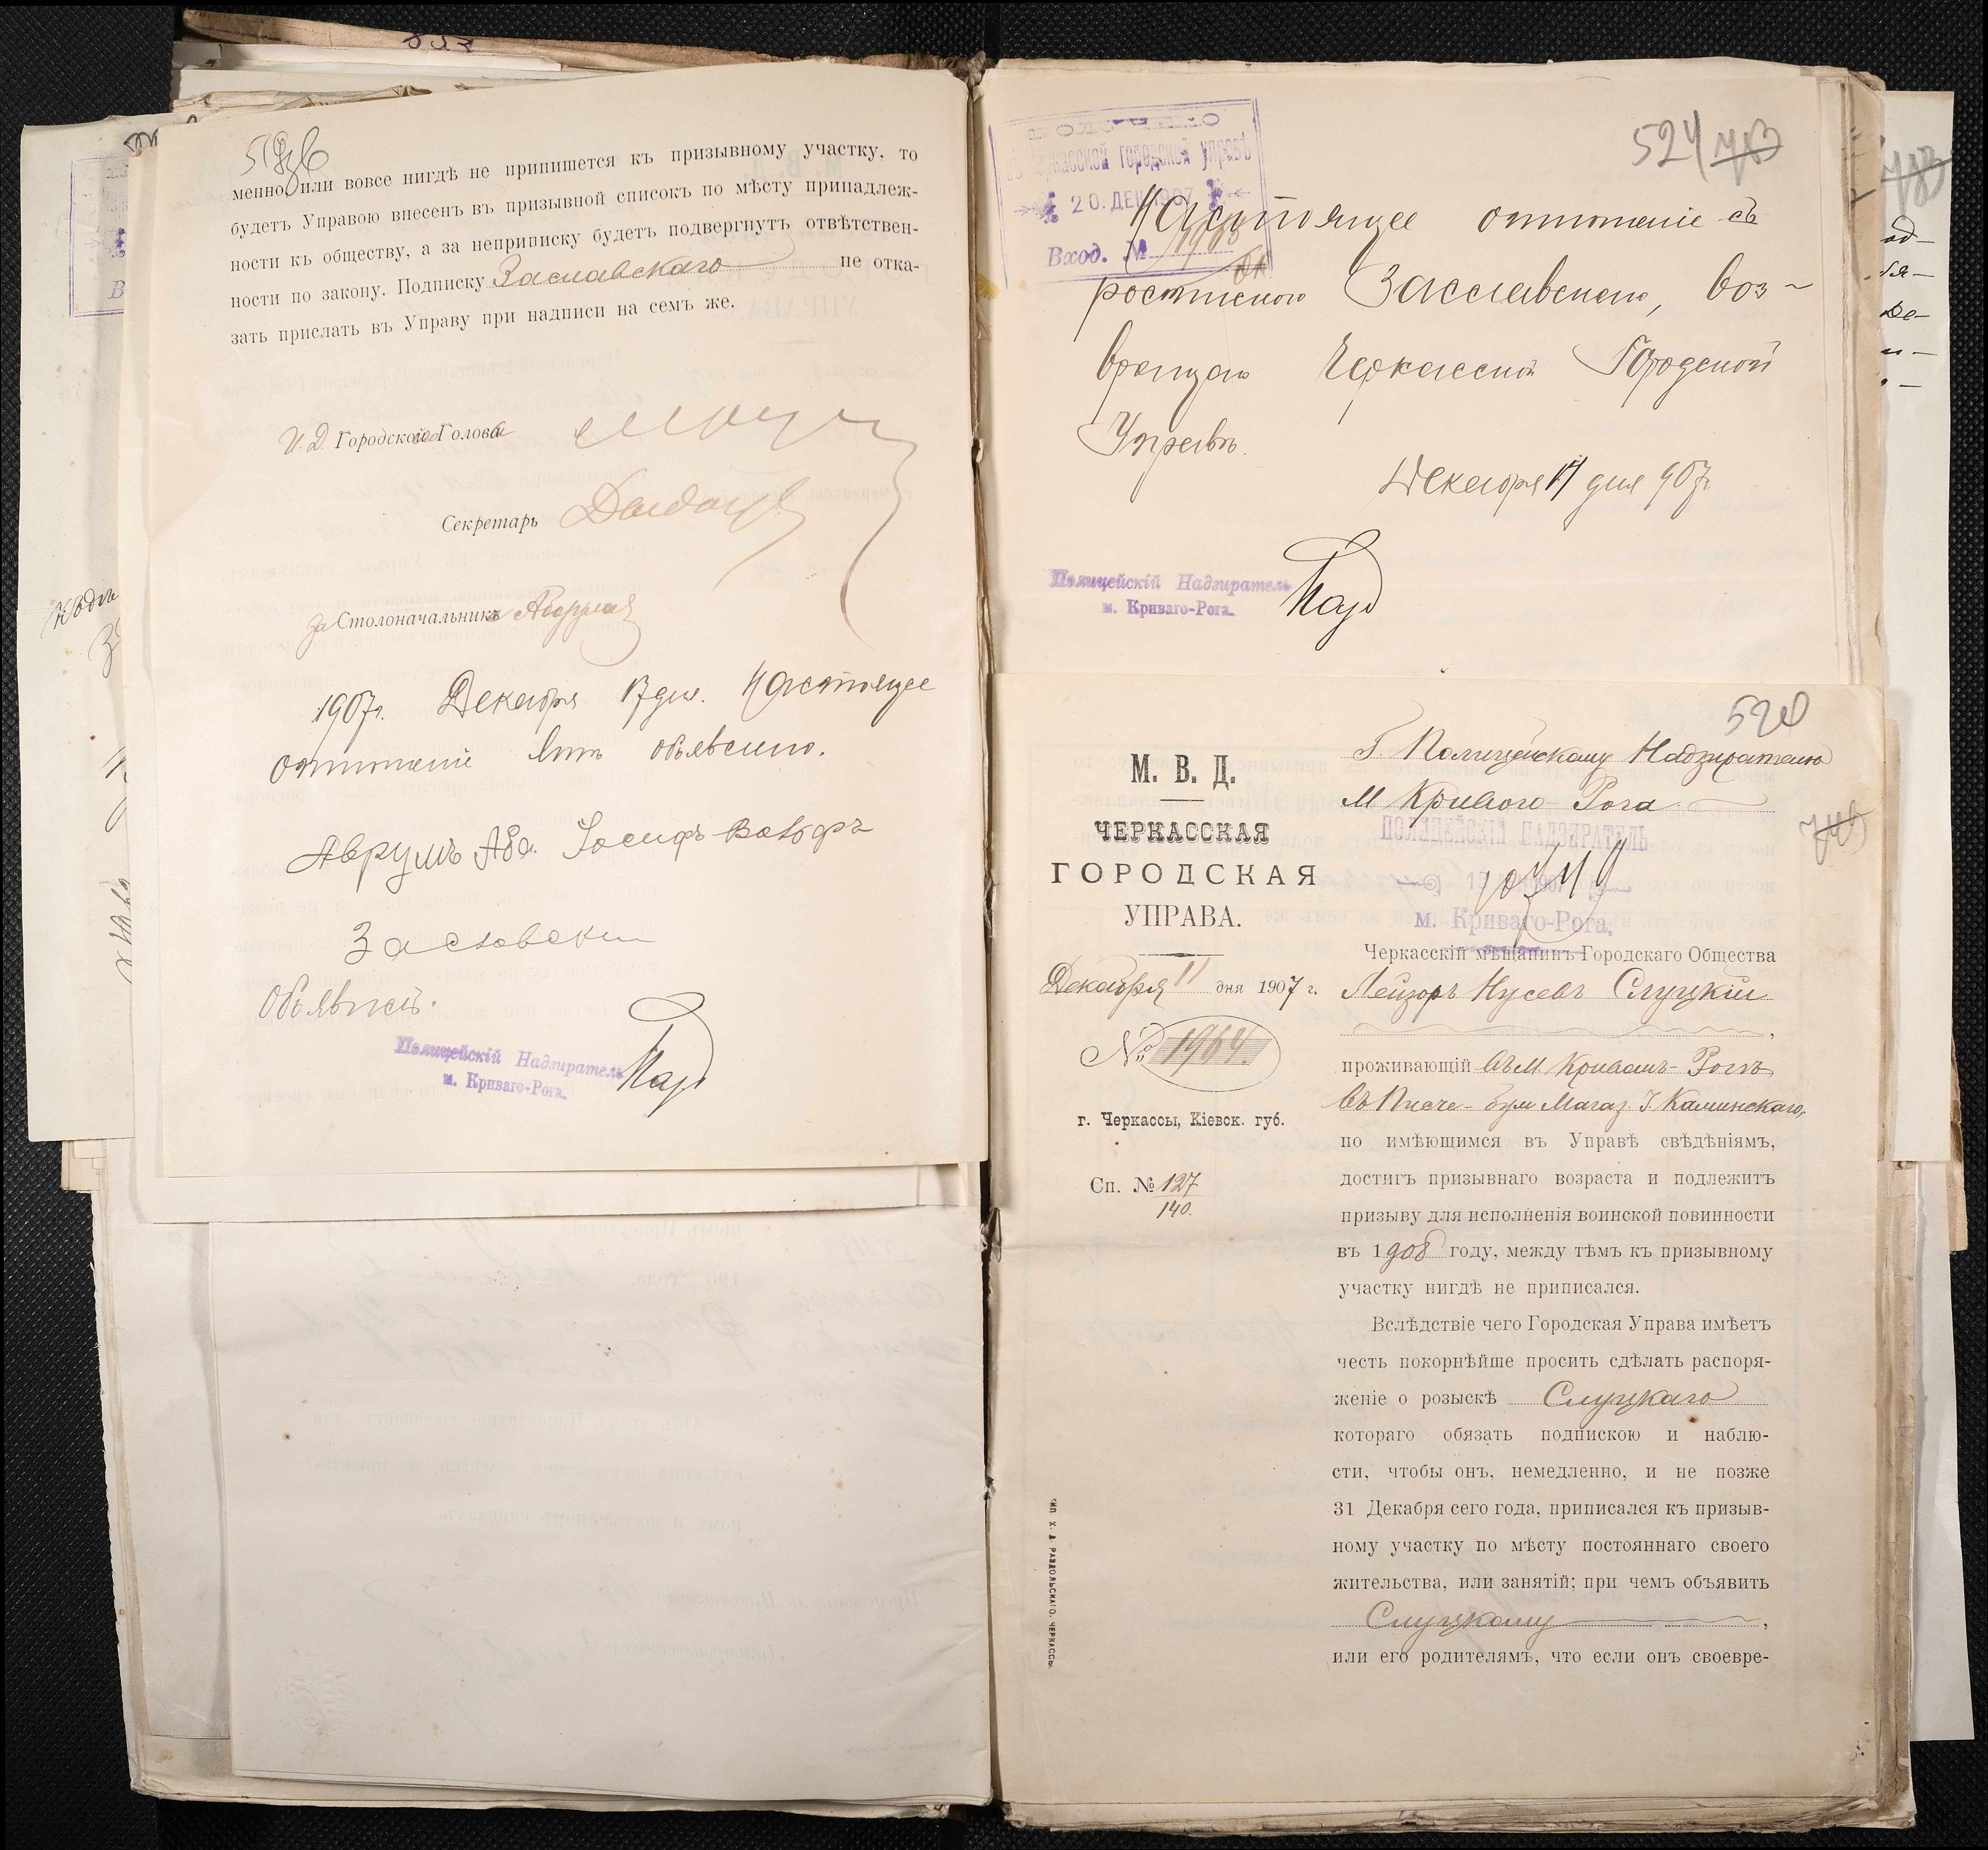 менно или вовсе нигдѣ не припишется къ призывному участку, то
будетъ Управою внесенъ въ призывной списокъ по мѣсту принадлеж-
ности къ обществу, а за неприписку будетъ подвергнутъ отвѣтствен-
ности по закону. Подписку Заславскаго не отка-
зать прислать въ Управу при надписи на семъ же.
И. Д. Городского Головы
Секретарь
за Столоначальника
1907 г. Декабря 17 дня. Настоящее
отношеніе мнѣ объявлено.
Аврумъ Аба. Іосифъ-Вольфъ
Заславски
Объявилъ.
Полицейскій Надзиратель
м. Криваго-Рога.
524
Черкасской городской управѣ
20. ДЕК 1907
Вход. №
Настоящее отношеніе съ
роспискою Заславскаго, воз-
вращаю Черкасской Городской
Управѣ.
Декабря 17 дня 907 г.
Полицейскій Надзиратель
м. Криваго-Рога.
М. В. Д.
ЧЕРКАССКАЯ
ГОРОДСКАЯ
УПРАВА.
Декабря 11 дня 1907 г.
№ 1964.
г. Черкассы, Кіевск. губ.
Сп. № 127
140.
ТИП. Х. Д. РАЗДОЛЬСКАГО, ЧЕРКАССЫ.
Г. Полицейскому Надзирателю
м Кривого-Рога
ПОЛИЦЕЙСКІЙ НАДЗИРАТЕЛЬ
м. Криваго-Рога.
Черкасскій мѣщанинъ Городскаго Общества
Лейзоръ Нусевъ Слуцкій
,
проживающій въ м. Кривомъ-Рогѣ,
въ Писче-бум Магаз. І Каминскаго,
по имѣющимся въ Управѣ свѣдѣніямъ,
достигъ призывнаго возраста и подлежитъ
призыву для исполненія воинской повинности
въ 1908 году, между тѣмъ къ призывному
участку нигдѣ не приписался.
Вслѣдствіе чего Городская Управа имѣетъ
честь покорнѣйше просить сдѣлать распоря-
женіе о розыскѣ Слуцкаго
котораго обязать подпискою и наблю-
сти, чтобы онъ, немедленно, и не позже
31 Декабря сего года, приписался къ призыв-
ному участку по мѣсту постояннаго своего
жительства, или занятій; при чемъ объявить
Слуцкому ,
или его родителямъ, что если онъ своевре-